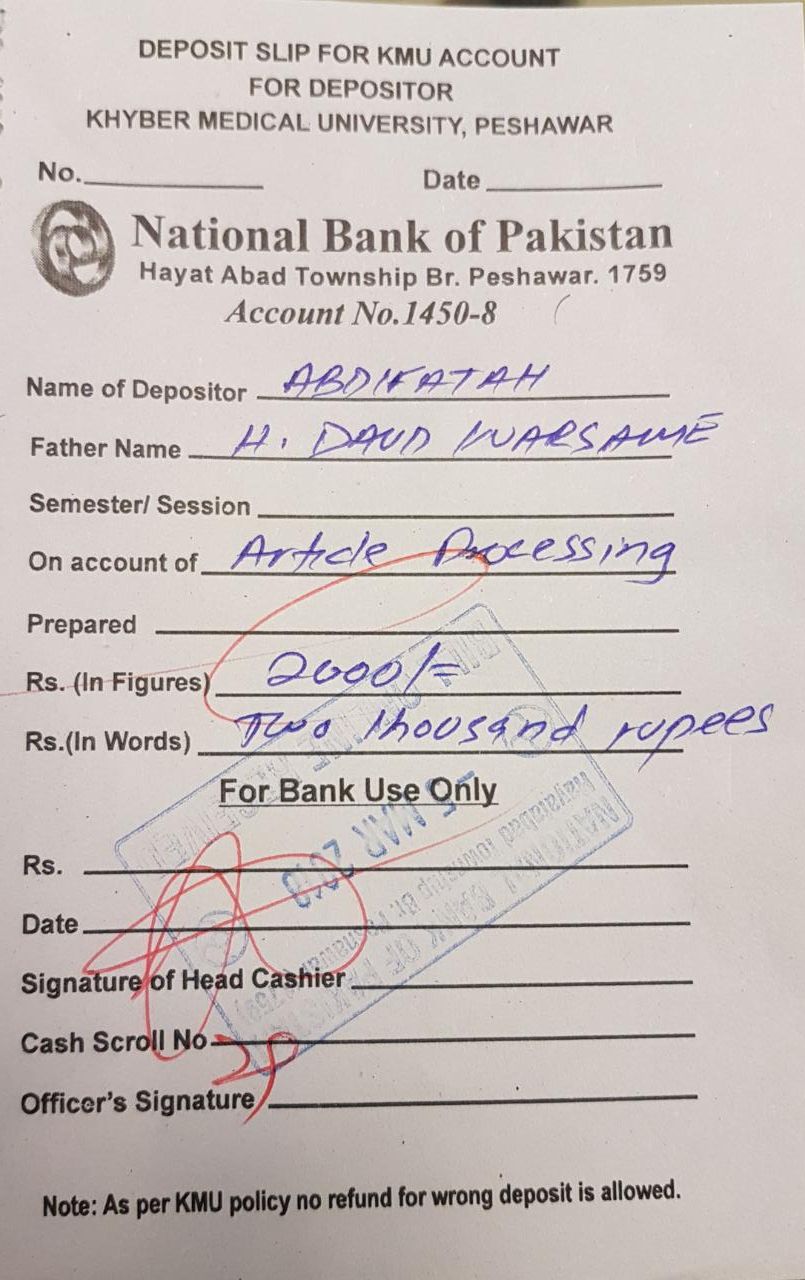 DEPOSIT SLIP FOR KMU ACCOUNT
FOR DEPOSITOR
KHYBER MEDICAL UNIVERSITY, PESHAWAR
No. Date
National Bank of Pakistan
Hayat Abad Township Br. Peshawar. 1759
Account No.1450-8
Name of Depositor ABDIFATAH
Father Name H. DAUD WARSAME
Semester/ Session
On account of Article Processing
Prepared
Rs. (In Figures) 2000/=
Rs.(In Words) Two thousand rupees
For Bank Use Only
Rs.
MAR 2018
Date
NATIONAL BANK OF PAKISTAN
Hayatabad Township Br. Peshawar
Signature of Head Cashier
Cash Scroll No
Officer's Signature
Note: As per KMU policy no refund for wrong deposit is allowed.